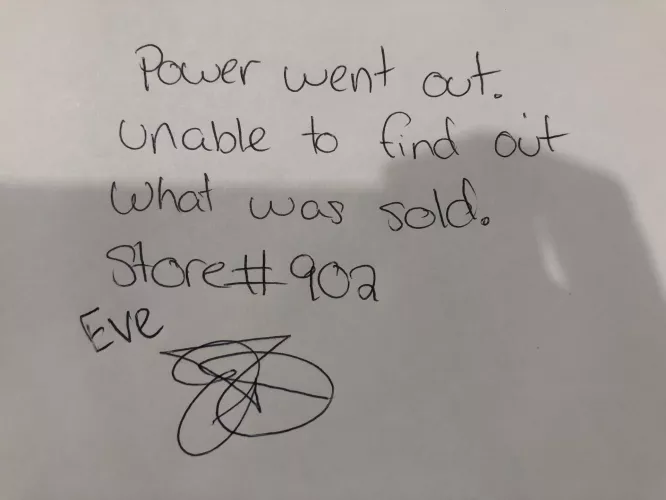 Power went out.
Unable to find out
what was sold.
Store# 902
Eve